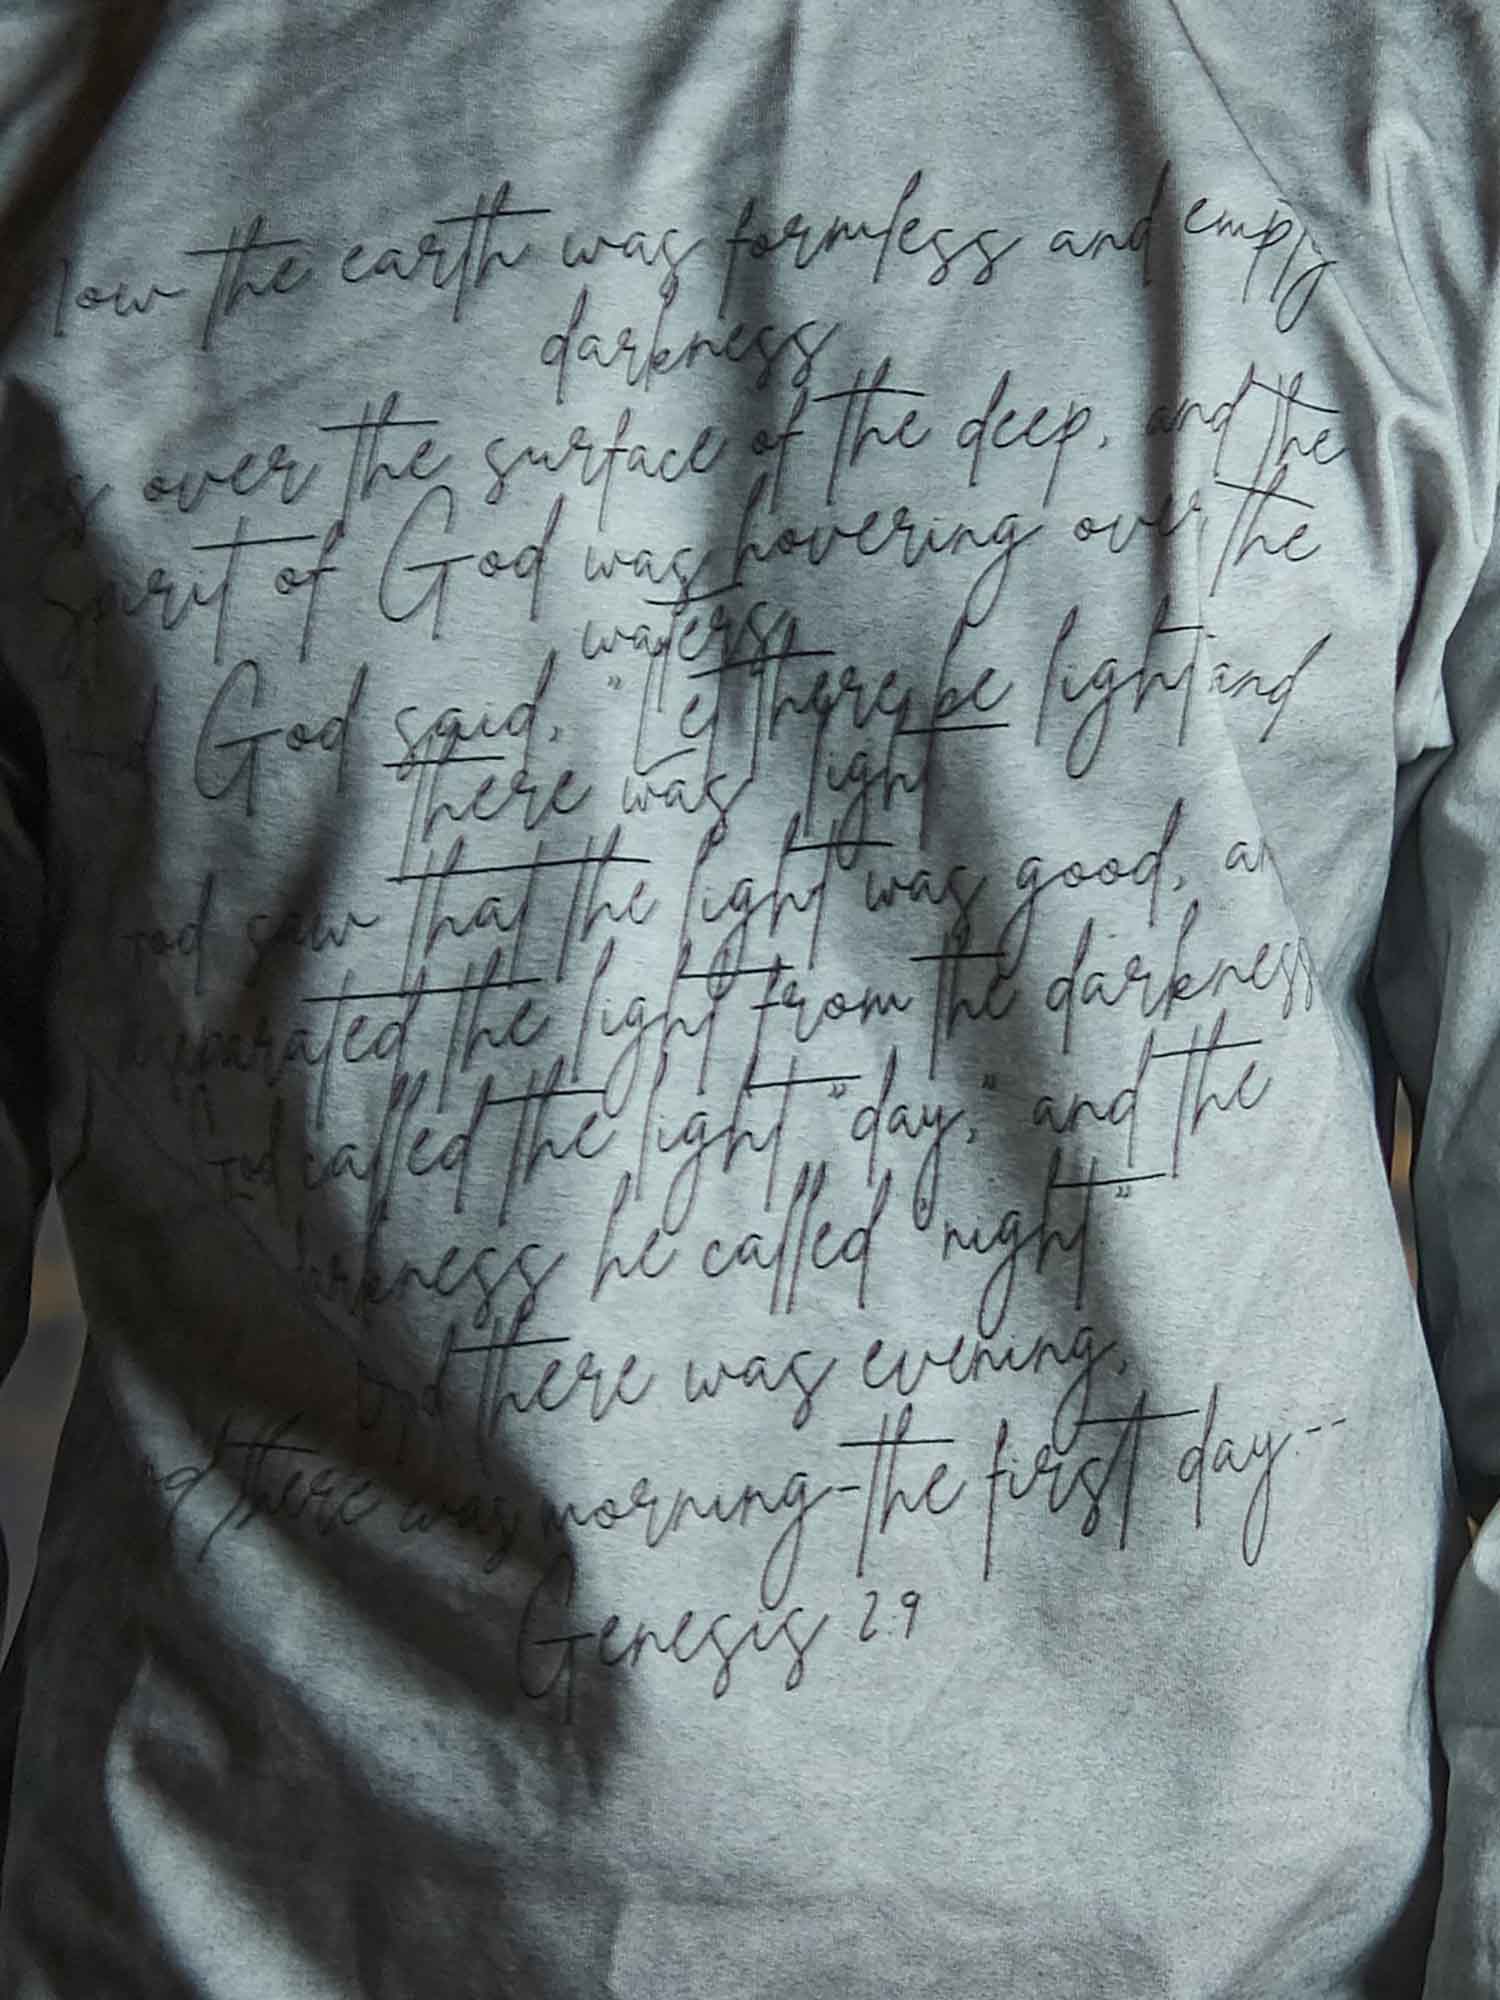 Now the earth was formless and empty
darkness
was over the surface of the deep, and the
Spirit of God was hovering over the
waters.
And God said, "Let there be light and
there was light
God saw that the light was good, an
separated the light from the darkness
God called the light "day," and the
darkness he called "night"
And there was evening,
and there was morning-the first day.--
Genesis 2.9